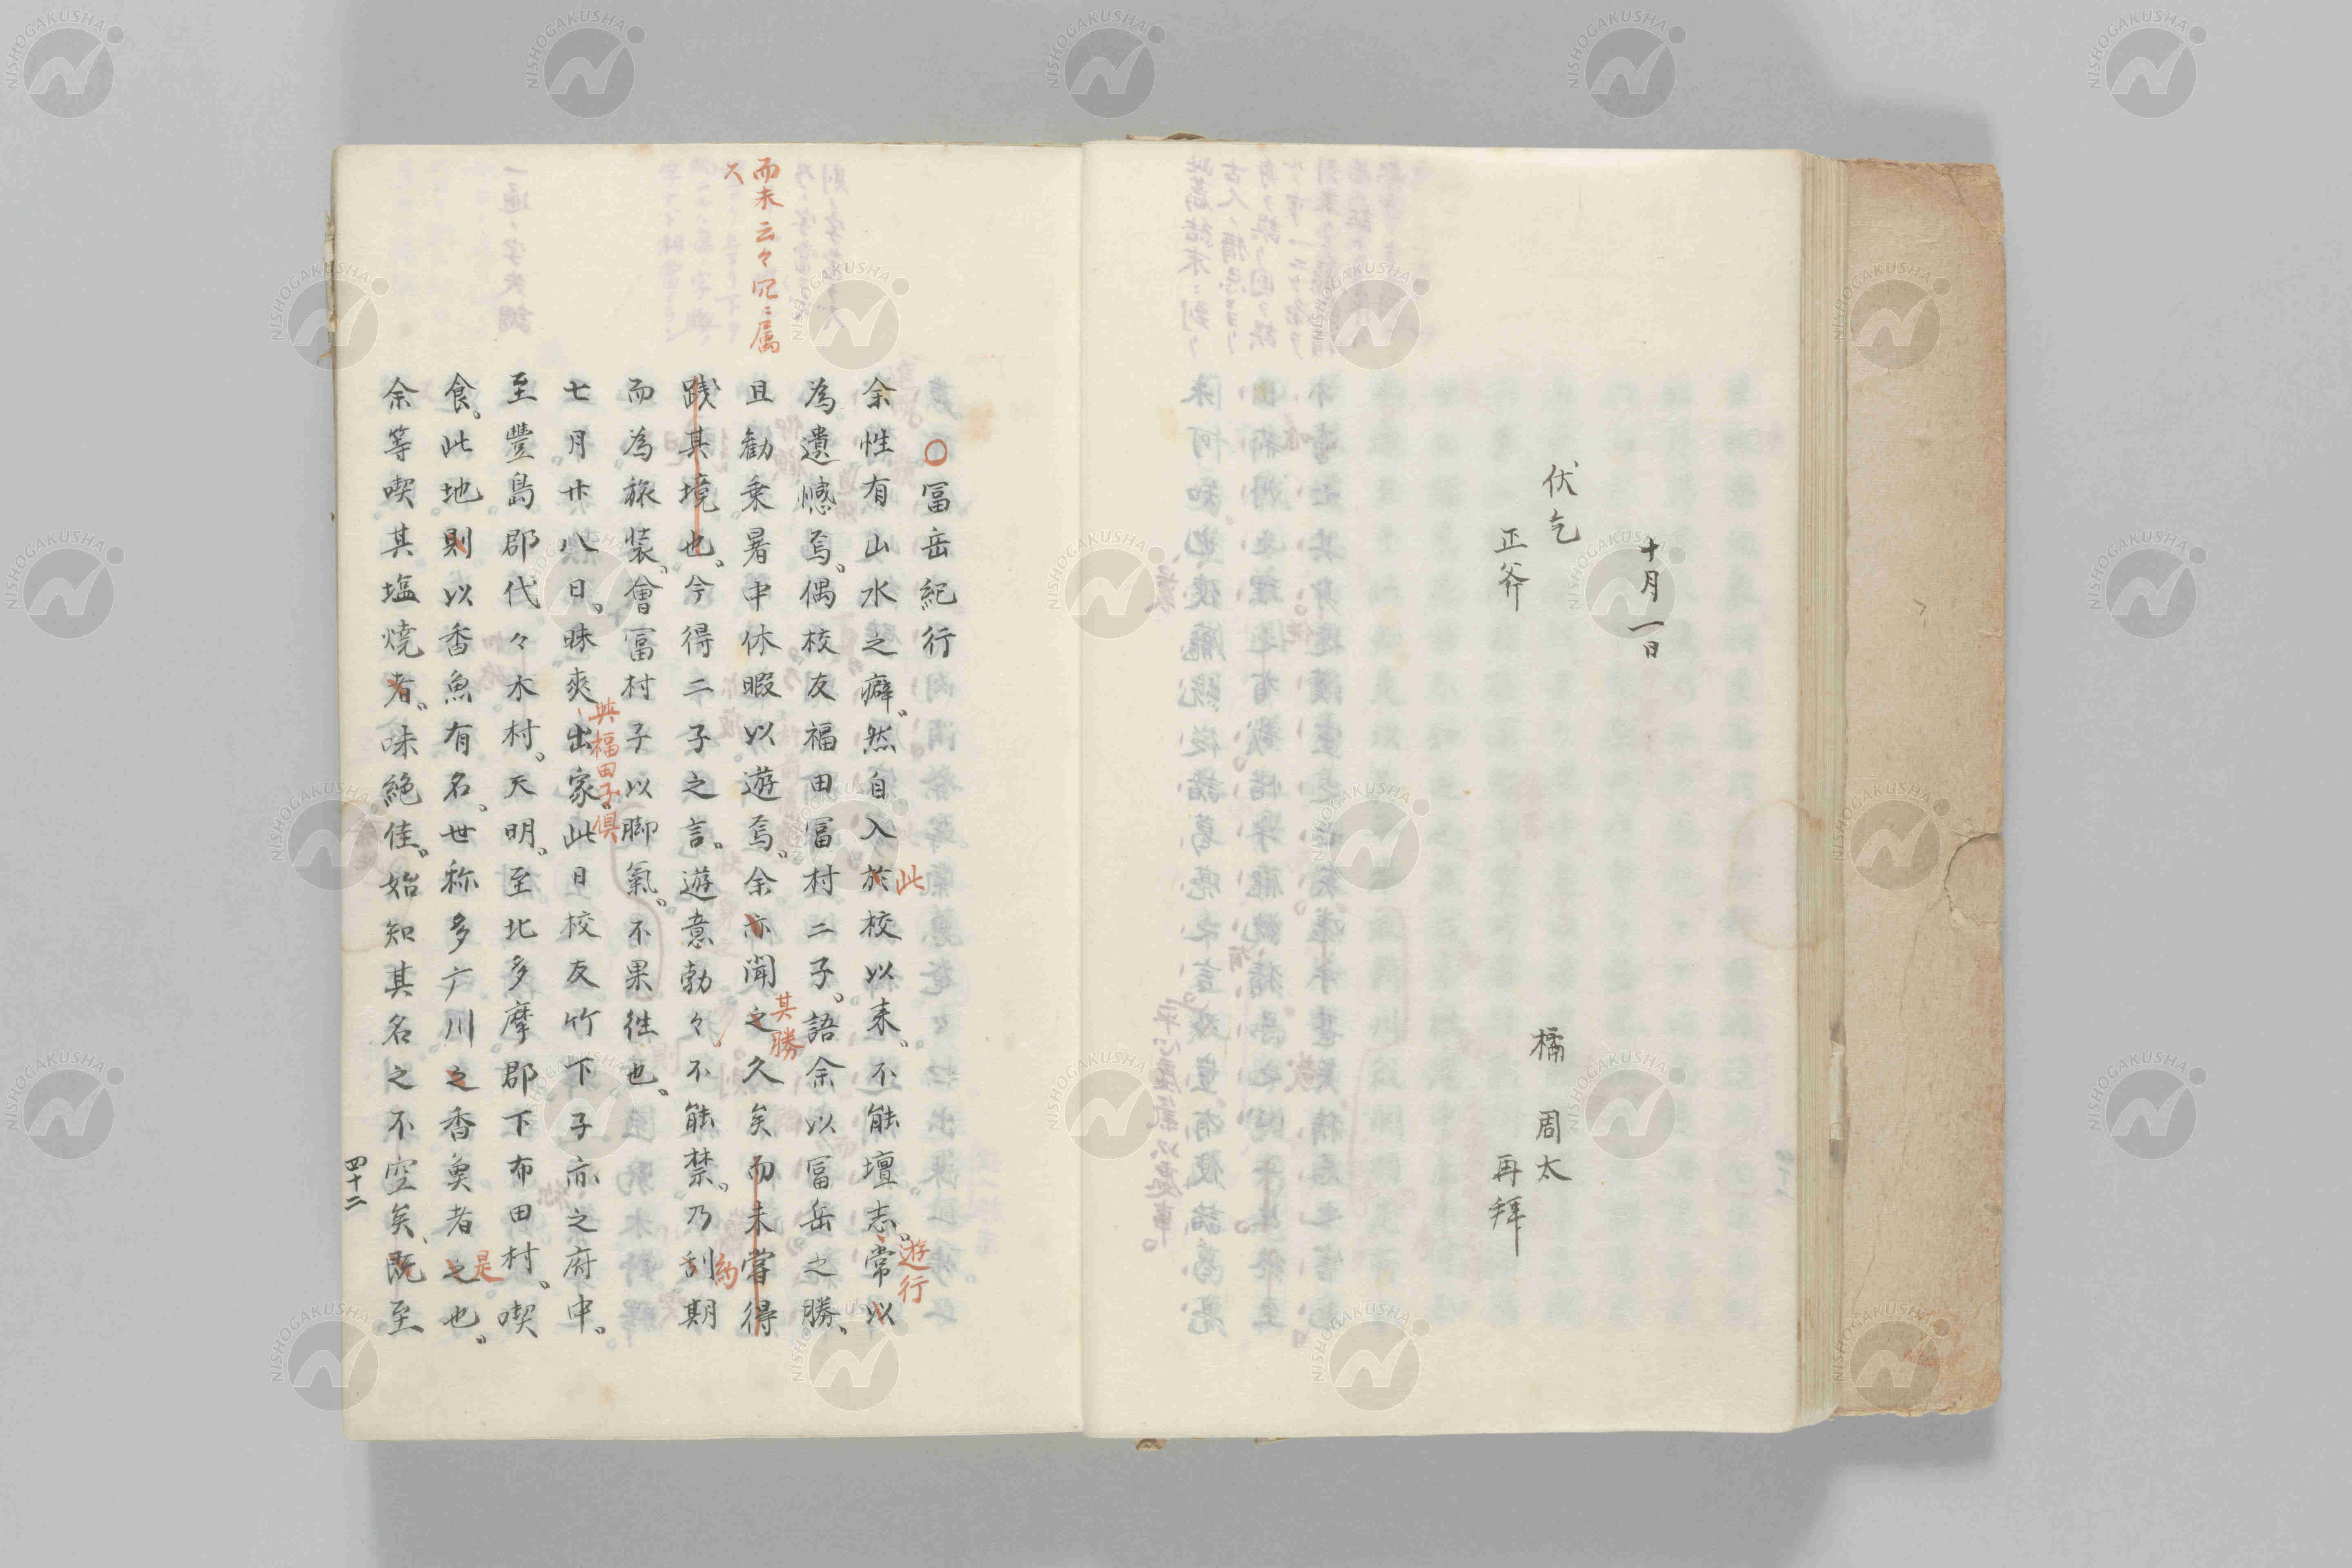 十月一日
伏乞
橘 周太
正斧
再拜
〇冨岳紀行
余性有山水之癖。然自入於校以来。不能壇志。常以
此
遊行
為遺憾焉。偶校友福田冨村二子。語余以冨岳之勝。
且勸乗暑中休暇以遊焉。余亦聞之久矣而未嘗得
其勝
而未云々冗ニ属
ス
践其境也。今得二子之言。遊意勃々。不能禁。乃刮期
約
而為旅装。會冨村子以脚氣。不果徃也。
七月廿八日。昧爽出家。此日校友竹下子亦之府中。
與福田子俱
至豐島郡代々木村。天明。至北多摩郡下布田村。喫
食。此地則以香魚有名。世称多广川之香魚者之也。
是
余等喫其塩燒者。味絶佳。始知其名之不空矣、既至
四十二